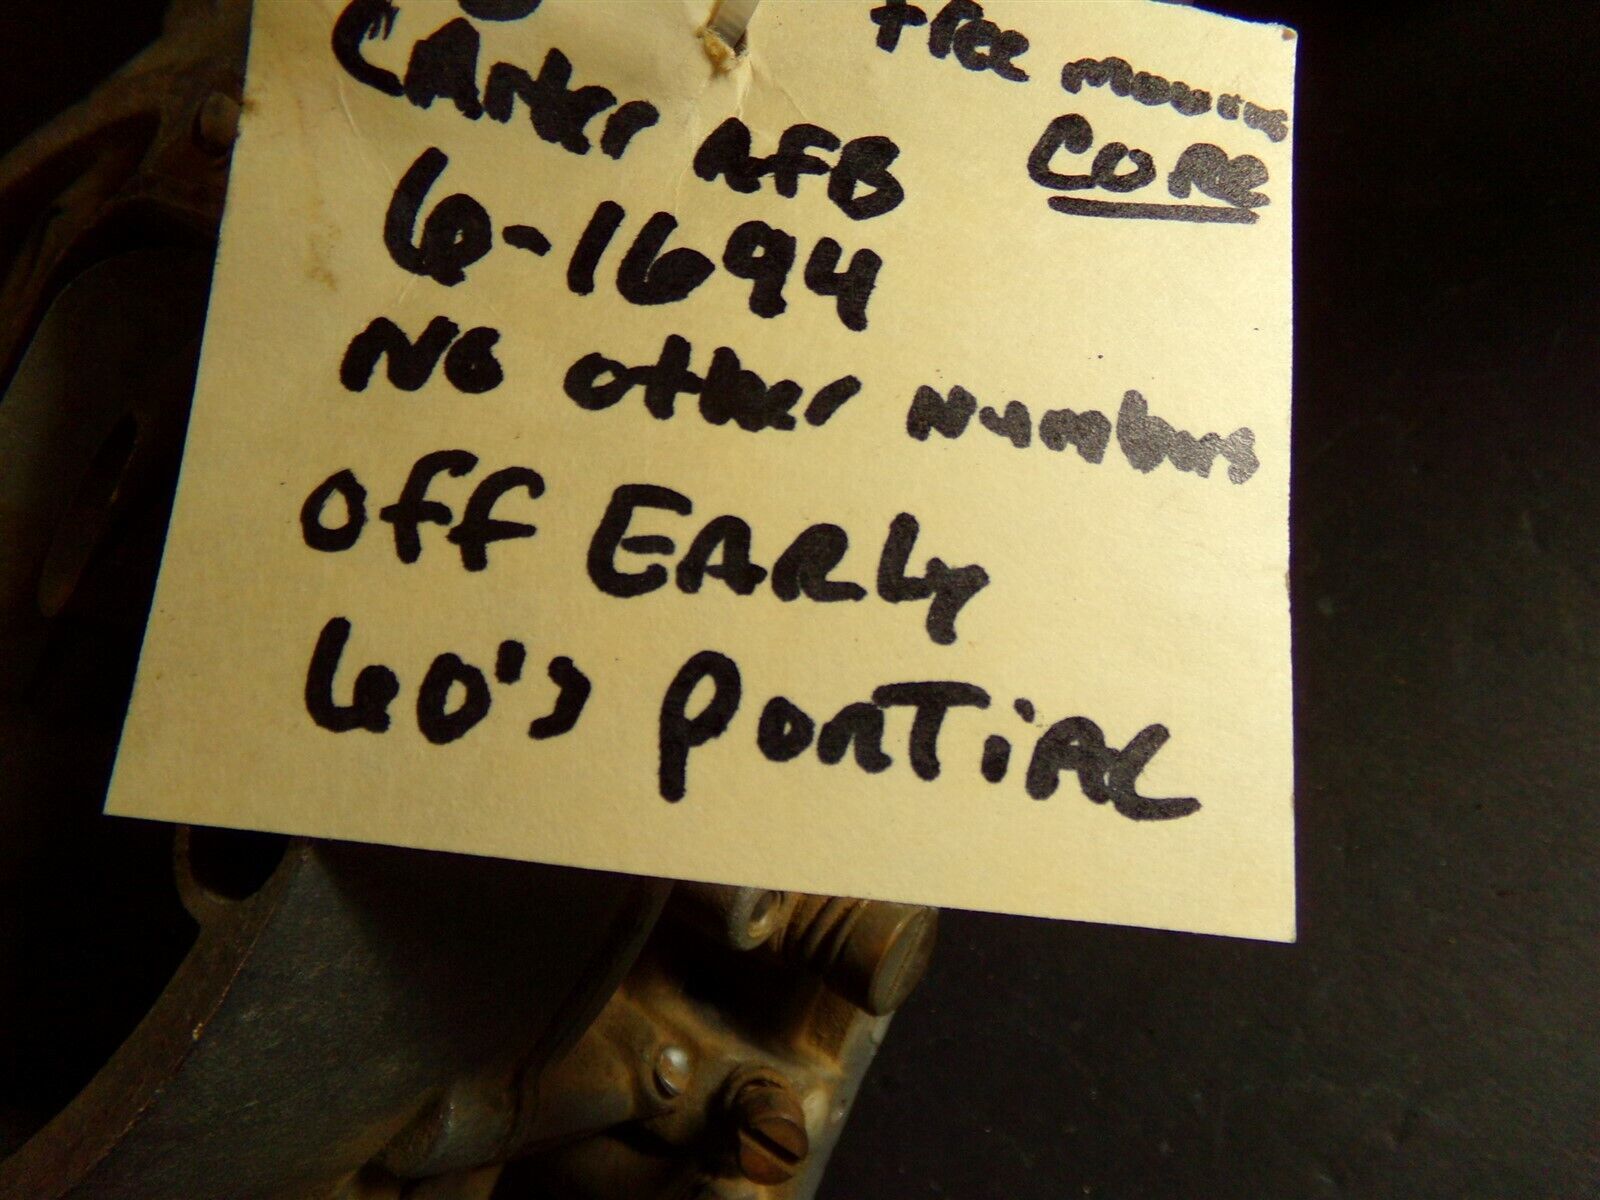 free moving
CORE
CArter AFB
6-1694
No other numbers
off EARLy
60's ponTiAC